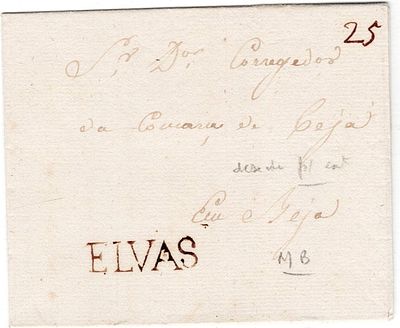 25
Sr. Dor. Corregedor
da Comarca de Beja
Em Beja
ELVAS
MB